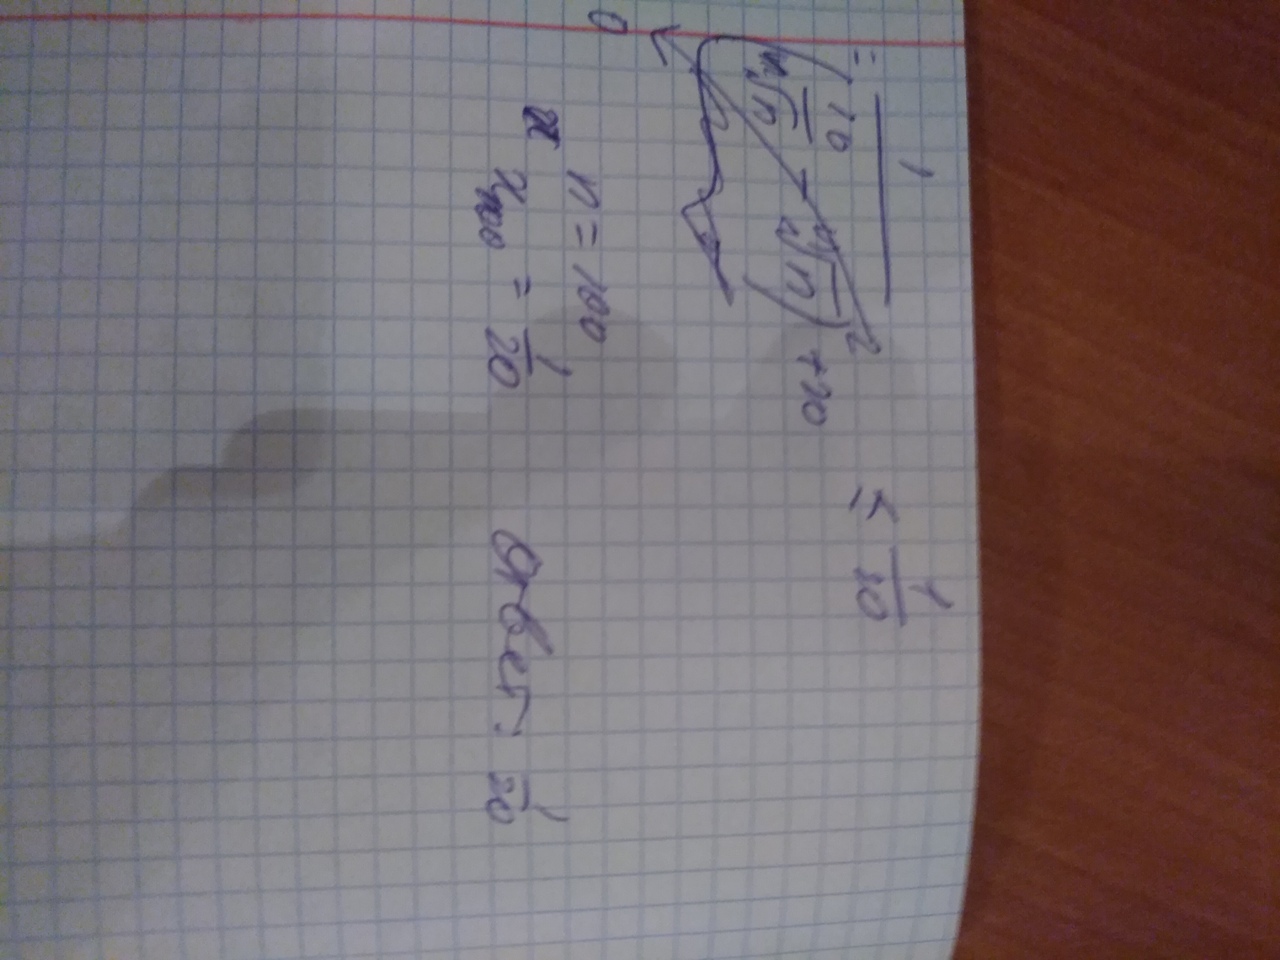 = 1 / ( 10/√n - √n )² + 20 ≤ 1/20
0
n = 100
x₁₀₀ = 1/20 Ответ: 1/20